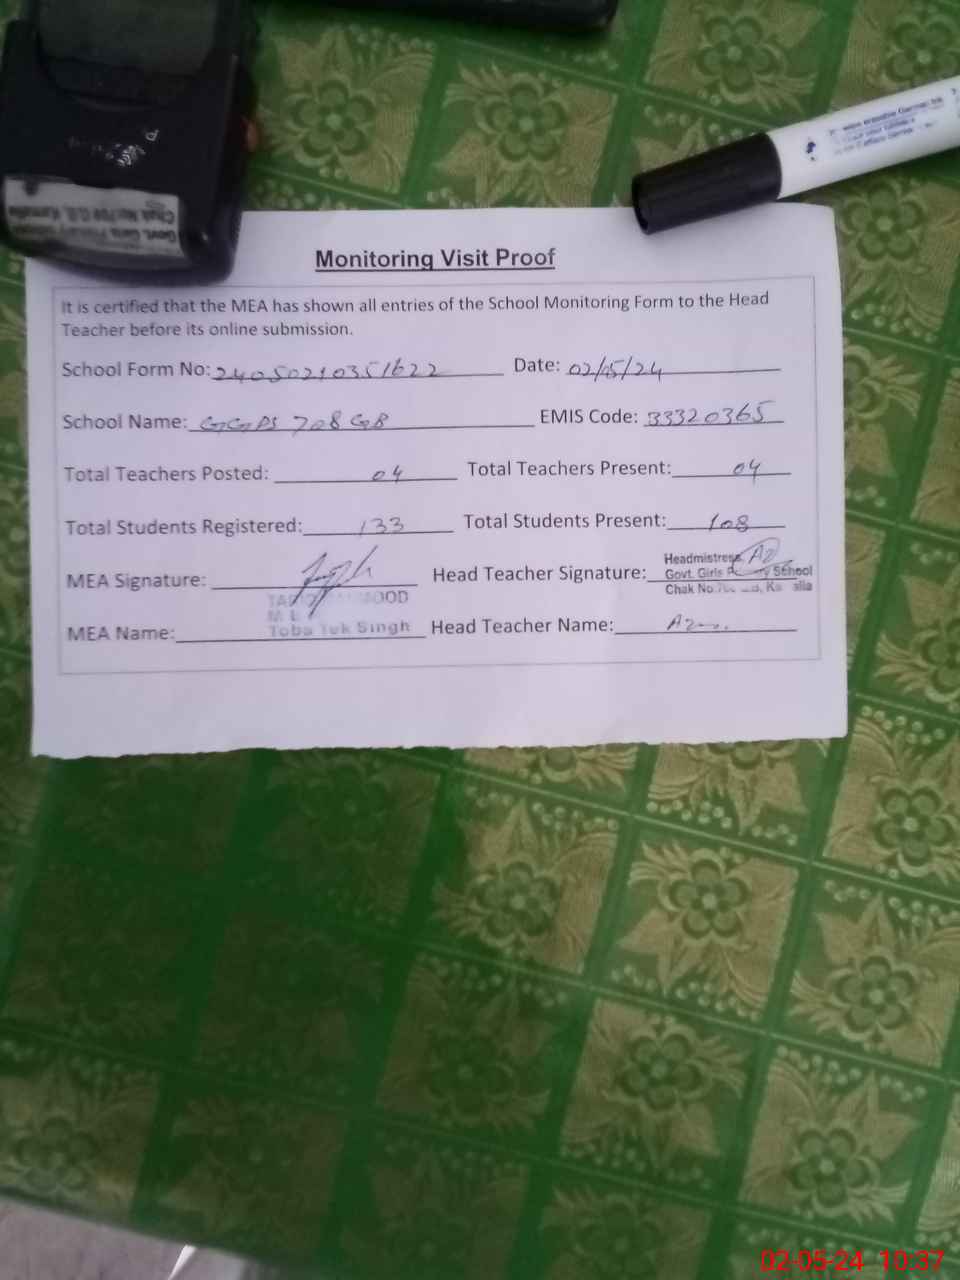 Monitoring Visit Proof
It is certified that the MEA has shown all entries of the School Monitoring Form to the Head
Teacher before its online submission.
School Form No: 24050210351622 Date: 02/05/24
School Name: GGPS 708 GB EMIS Code: 33320365
Total Teachers Posted: 04 Total Teachers Present: 04
Total Students Registered: 133 Total Students Present: 108
MEA Signature: Head Teacher Signature:
Headmistress
Govt. Girls School
Chak No.
M E
Toba Tek Singh
MEA Name: Head Teacher Name:
Govt. Girls Primary School
Chak No.708 G.B. Kamalia
02-05-24 10:37